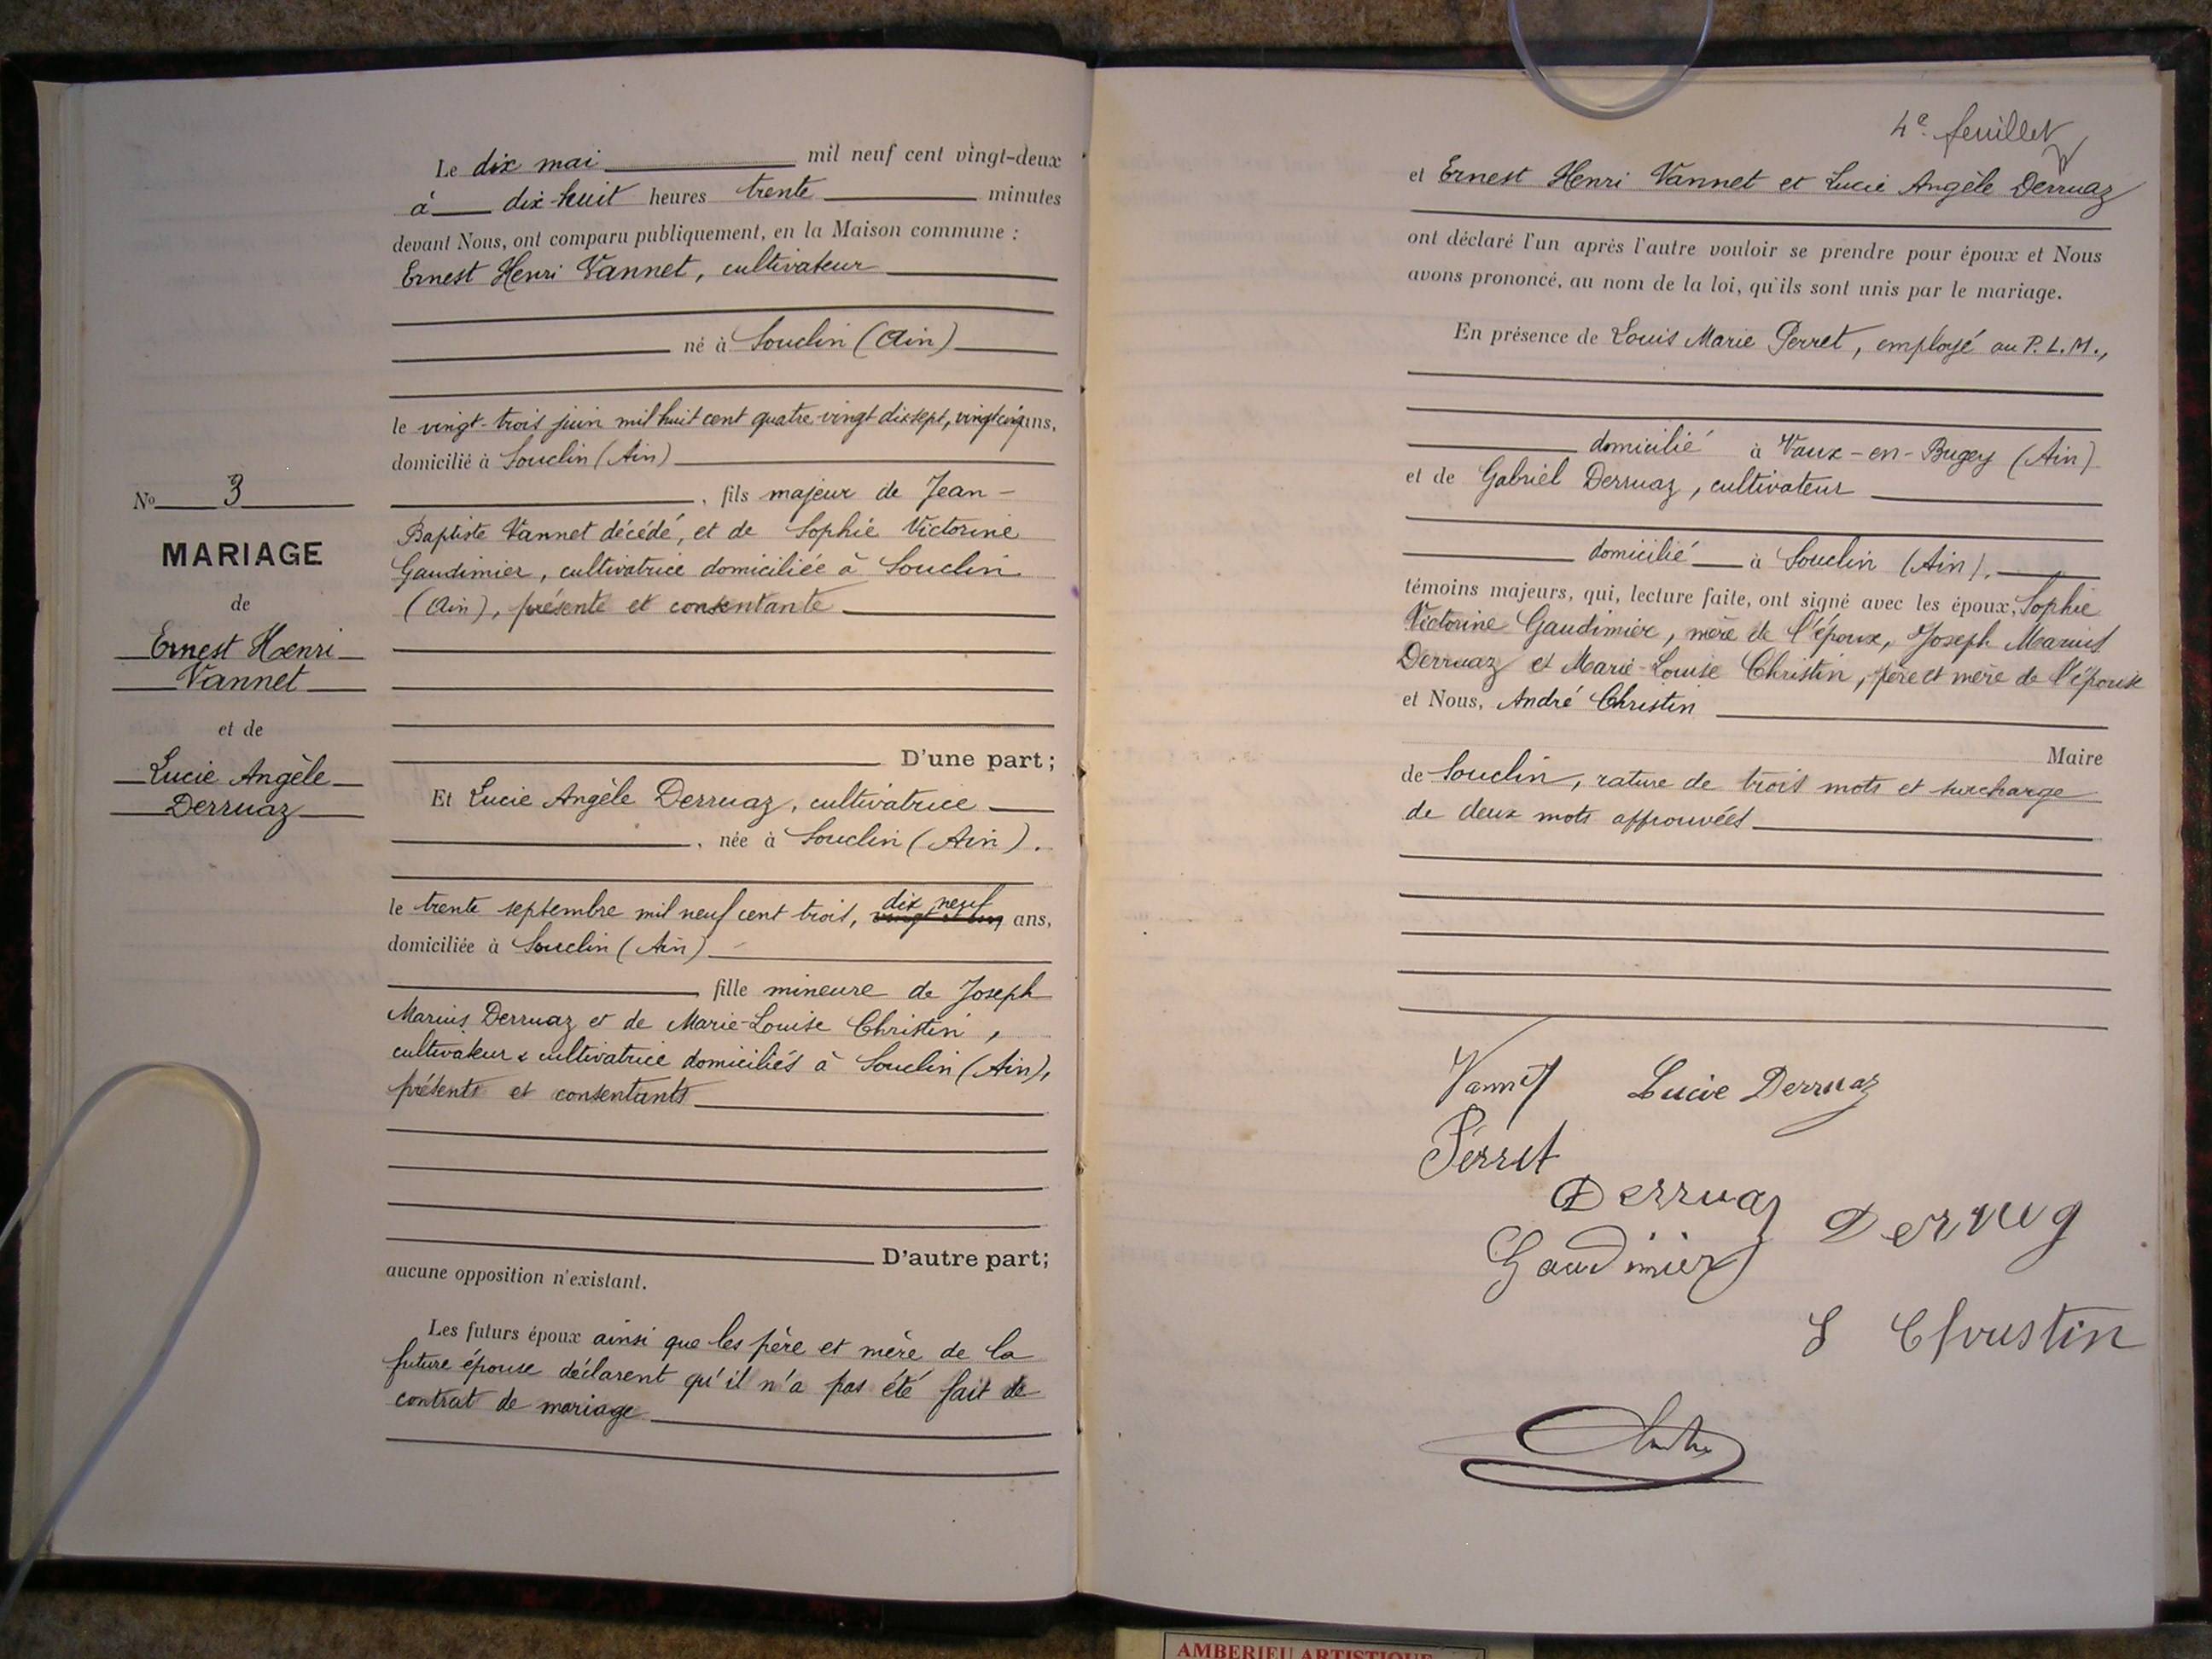 Le dix mai mil neuf cent vingt-deux
à dix-huit heures trente minutes
devant Nous, ont comparu publiquement, en la Maison commune :
Ernest Henri Vannet, cultivateur
né à Souclin (Ain)
le vingt-trois juin mil huit cent quatre-vingt dix sept, vingt cinq ans,
domicilié à Souclin (Ain)
, fils majeur de Jean-
Baptiste Vannet décédé, et de Sophie Victorine
Gaudimier, cultivatrice domiciliée à Souclin
(Ain), présente et consentante
No 3
MARIAGE
de
Ernest Henri
Vannet
et de
Lucie Angèle
Derruaz
D'une part;
Et Lucie Angèle Derruaz, cultivatrice
, née à Souclin (Ain).
dix neuf
le trente septembre mil neuf cent trois, vingt et un ans,
domiciliée à Souclin (Ain)
fille mineure de Joseph
Marius Derruaz et de Marie-Louise Christin,
cultivateur & cultivatrice domiciliés à Souclin (Ain),
présents et consentants
D'autre part;
aucune opposition n'existant.
Les futurs époux ainsi que les père et mère de la
future épouse déclarent qu'il n'a pas été fait de
contrat de mariage
4e feuillet
et Ernest Henri Vannet et Lucie Angèle Derruaz
ont déclaré l'un après l'autre vouloir se prendre pour époux et Nous
avons prononcé, au nom de la loi, qu'ils sont unis par le mariage.
En présence de Louis Marie Perret, employé au P.L.M.,
domicilié à Vaux-en-Bugey (Ain)
et de Gabriel Derruaz, cultivateur
domicilié à Souclin (Ain).
témoins majeurs, qui, lecture faite, ont signé avec les époux, Sophie
Victorine Gaudimier, mère de l'époux, Joseph Marius
Derruaz et Marie-Louise Christin, père et mère de l'épouse
et Nous, André Christin
Maire
de Souclin, rature de trois mots et surcharge
de deux mots approuvées
Vannet Lucie Derruaz
Perret
Derruaz
Gaudimier
Christin
AMBERIEU ARTISTIQUE